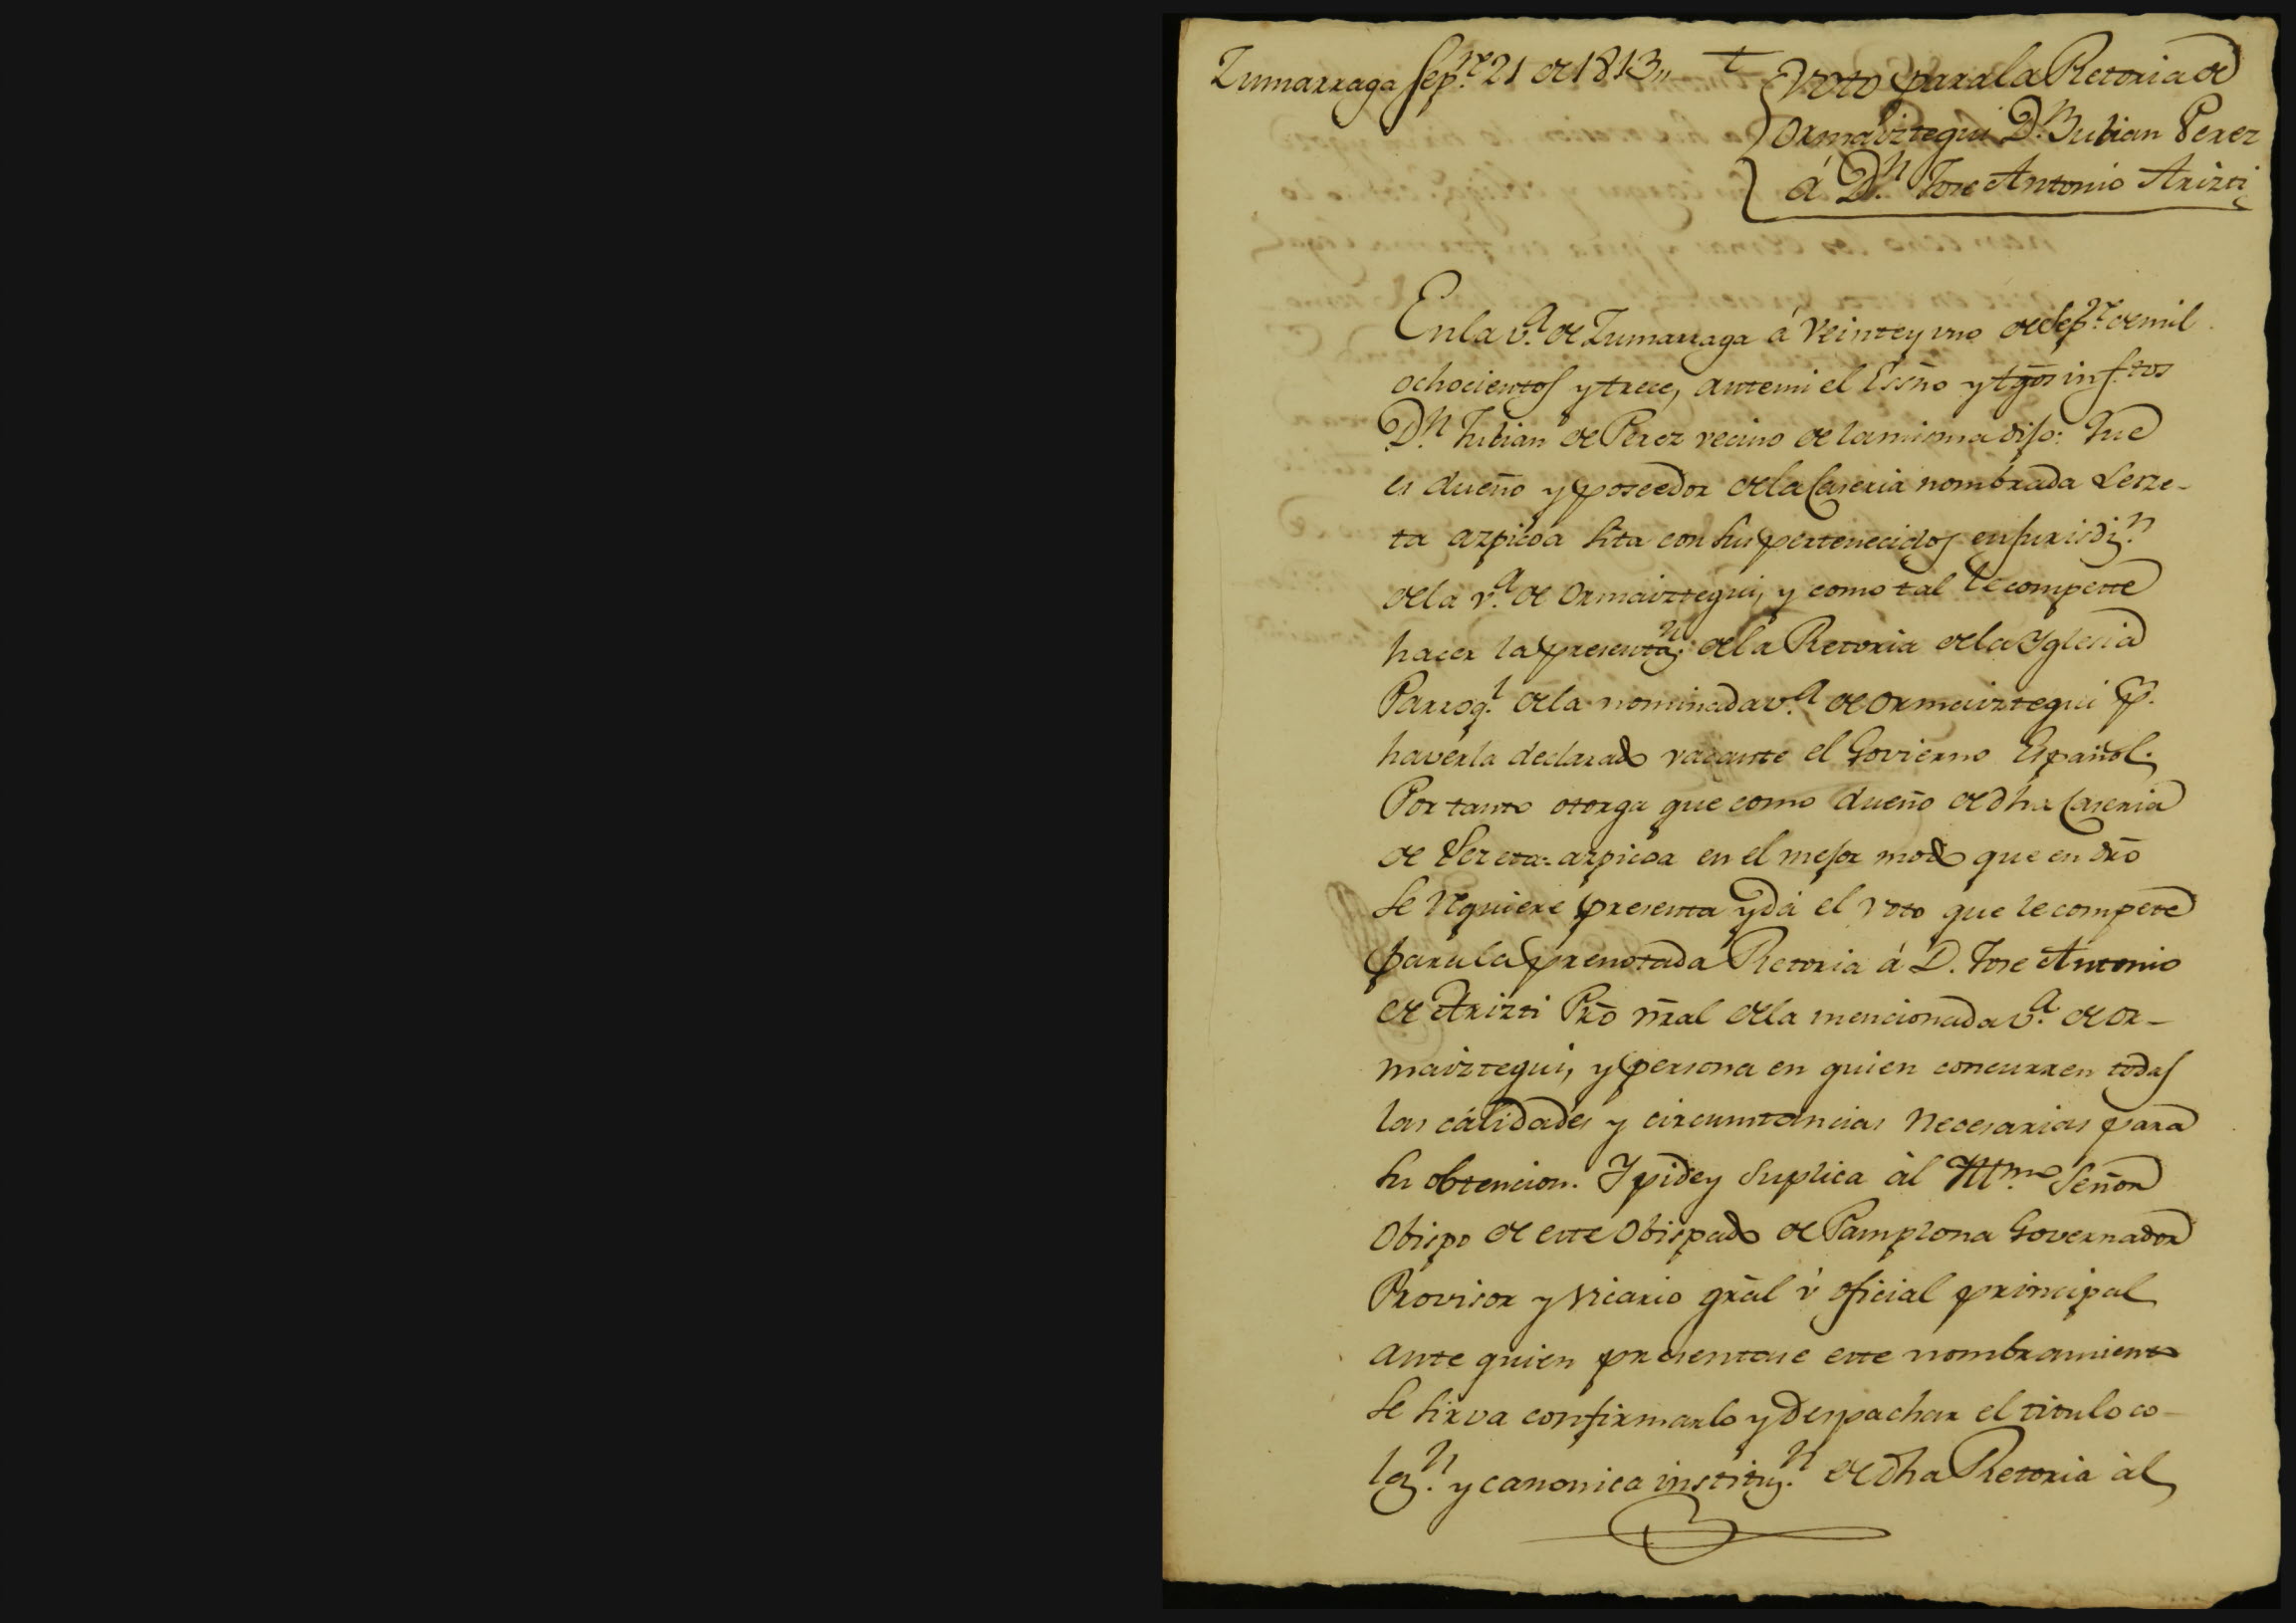 Zumarraga Sep.re 21 de 1813,, t
Voto para la Retoria de
Ormaiztegui D.n Julian Perez
á D.n Jose Antonio Arizti
En la v.a de Zumarraga á veinte y uno de Sep.re de mil
ochocientos y trece, ante mi el Essño y tgōs inf.tos
D.n Julian de Perez vecino de la misma dijo: Que
es dueño y poseedor de la Caseria nombrada Lerze-
ta azpicoa sita con sus pertenecidos en jurisdiz.n
de la v.a de Ormaiztegui, y como tal le compette
hacer la presentaz.n de la Retoria de la Yglesia
Parroq.l de la nominada v.a de Ormaiztegui p.r
haverla declarado vacante el Govierno Español.
Por tanto otorga que como dueño de dha Caseria
de Lerzeta-azpicoa en el mejor modo que en dro
se requiere presenta y dá el voto que le compete
para la prenotada Retoria á D. Jose Antonio
de Arizti Pro nral de la mencionada v.a de Or-
maiztegui, y persona en quien concurren todas
las cálidades y circunstancias necesarias para
su obtencion. Y pide y suplica àl Yllmo Señor
Obispo de este Obispado de Pamplona Governador
Provisor y vicario gral ù oficial principal
ante quien presentase este nombramiento
se sirva confirmarlo y despachar el titulo co-
laz.n y canonica instituz.n de dha Retoria àl